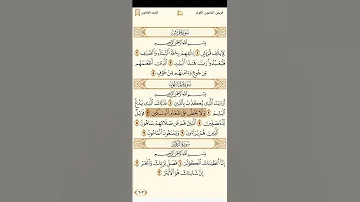 سُورَةُ قُرَيْشٍ
بِسْمِ اللَّهِ الرَّحْمَٰنِ الرَّحِيمِ
لِإِيلَافِ قُرَيْشٍ ١ إِيلَافِهِمْ رِحْلَةَ الشِّتَاءِ وَالصَّيْفِ ٢
فَلْيَعْبُدُوا رَبَّ هَٰذَا الْبَيْتِ ٣ الَّذِي أَطْعَمَهُم
مِّن جُوعٍ وَآمَنَهُم مِّنْ خَوْفٍ ٤
سُورَةُ الْمَاعُونِ
بِسْمِ اللَّهِ الرَّحْمَٰنِ الرَّحِيمِ
أَرَأَيْتَ الَّذِي يُكَذِّبُ بِالدِّينِ ١ فَذَٰلِكَ الَّذِي يَدُعُّ
الْيَتِيمَ ٢ وَلَا يَحُضُّ عَلَىٰ طَعَامِ الْمِسْكِينِ ٣ فَوَيْلٌ
لِّلْمُصَلِّينَ ٤ الَّذِينَ هُمْ عَن صَلَاتِهِمْ سَاهُونَ ٥
الَّذِينَ هُمْ يُرَاءُونَ ٦ وَيَمْنَعُونَ الْمَاعُونَ ٧
سُورَةُ الْكَوْثَرِ
بِسْمِ اللَّهِ الرَّحْمَٰنِ الرَّحِيمِ
إِنَّا أَعْطَيْنَاكَ الْكَوْثَرَ ١ فَصَلِّ لِرَبِّكَ وَانْحَرْ ٢
إِنَّ شَانِئَكَ هُوَ الْأَبْتَرُ ٣
٦٠٢